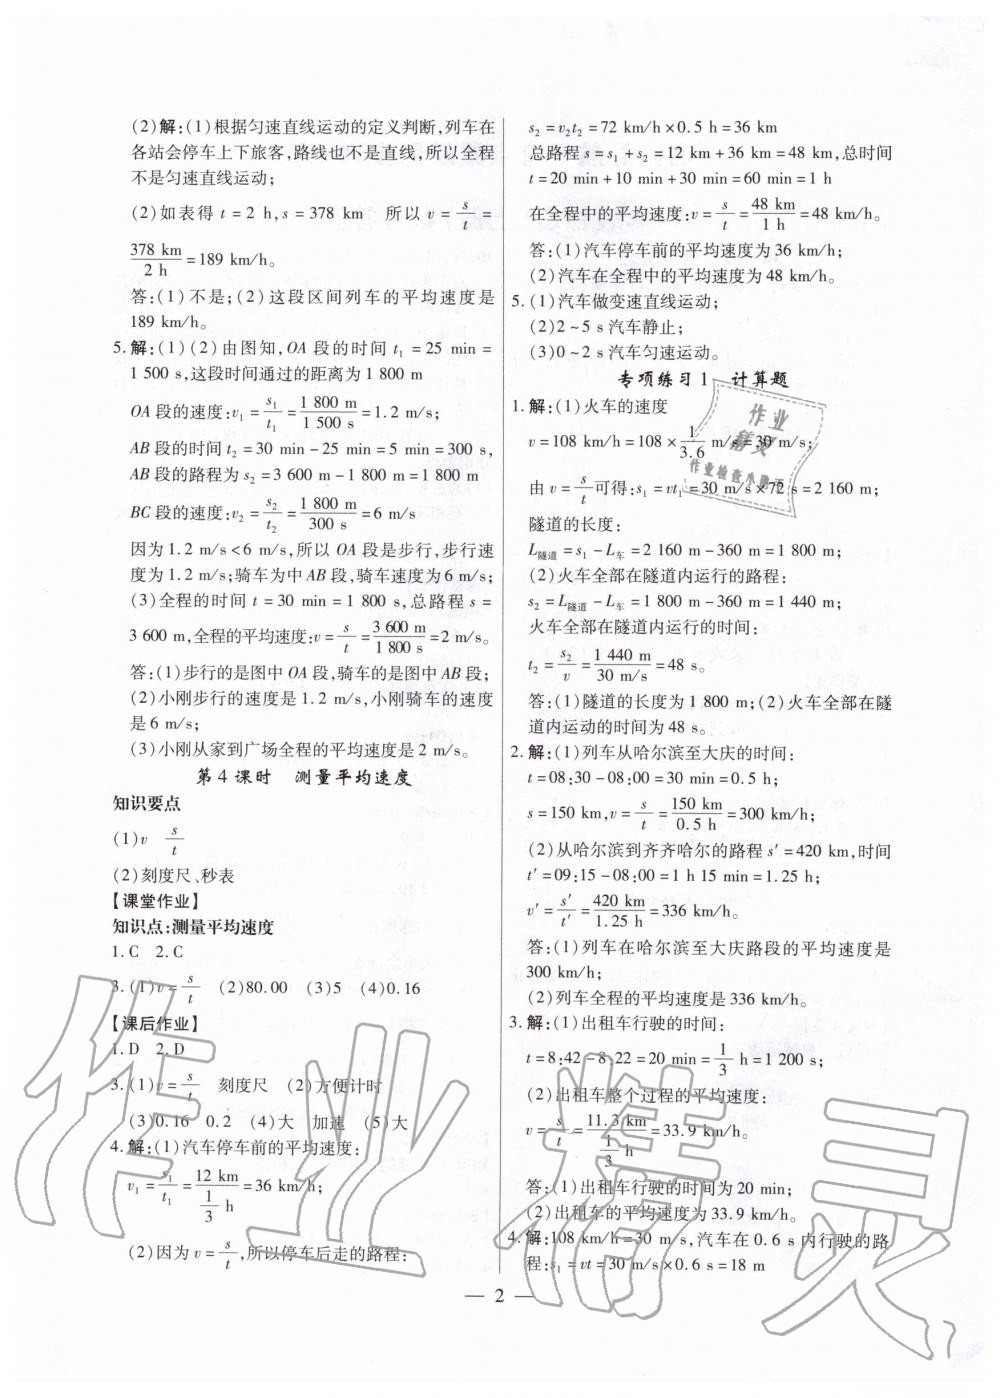 (2)解:(1)根据匀速直线运动的定义判断,列车在
各站会停车上下旅客,路线也不是直线,所以全程
不是匀速直线运动;
(2)如表得 t=2 h,s=378 km 所以 v=s/t=
378 km/2 h=189 km/h。
答:(1)不是;(2)这段区间列车的平均速度是
189 km/h。
5.解:(1)(2)由图知,OA 段的时间 t₁=25 min=
1 500 s,这段时间通过的距离为 1 800 m
OA 段的速度:v₁=s₁/t₁=1 800 m/1 500 s=1.2 m/s;
AB 段的时间 t₂=30 min-25 min=5 min=300 s,
AB 段的路程为 s₂=3 600 m-1 800 m=1 800 m
BC 段的速度:v₂=s₂/t₂=1 800 m/300 s=6 m/s
因为 1.2 m/s<6 m/s,所以 OA 段是步行,步行速
度为 1.2 m/s;骑车为中 AB 段,骑车速度为 6 m/s;
(3)全程的时间 t=30 min=1 800 s,总路程 s=
3 600 m,全程的平均速度:v=s/t=3 600 m/1 800 s=2 m/s。
答:(1)步行的是图中 OA 段,骑车的是图中 AB 段;
(2)小刚步行的速度是 1.2 m/s,小刚骑车的速度
是 6 m/s;
(3)小刚从家到广场全程的平均速度是 2 m/s。
第 4 课时 测量平均速度
知识要点
(1)v s/t
(2)刻度尺、秒表
【课堂作业】
知识点:测量平均速度
1.C 2.C
3.(1)v=s/t (2)80.00 (3)5 (4)0.16
【课后作业】
1.D 2.D
3.(1)v=s/t 刻度尺 (2)方便计时
(3)0.16 0.2 (4)大 加速 (5)大
4.解:(1)汽车停车前的平均速度:
v₁=s₁/t₁=12 km/(1/3 h)=36 km/h;
(2)因为 v=s/t,所以停车后走的路程:
s₂=v₂t₂=72 km/h×0.5 h=36 km
总路程 s=s₁+s₂=12 km+36 km=48 km,总时间
t=20 min+10 min+30 min=60 min=1 h
在全程中的平均速度:v=s/t=48 km/1 h=48 km/h。
答:(1)汽车停车前的平均速度为 36 km/h;
(2)汽车在全程中的平均速度为 48 km/h。
5.(1)汽车做变速直线运动;
(2)2~5 s 汽车静止;
(3)0~2 s 汽车匀速运动。
专项练习 1 计算题
1.解:(1)火车的速度
v=108 km/h=108×1/3.6 m/s=30 m/s;
由 v=s/t 可得:s₁=vt₁=30 m/s×72 s=2 160 m;
隧道的长度:
L隧道=s₁-L车=2 160 m-360 m=1 800 m;
(2)火车全部在隧道内运行的路程:
s₂=L隧道-L车=1 800 m-360 m=1 440 m;
火车全部在隧道内运行的时间:
t₂=s₂/v=1 440 m/30 m/s=48 s。
答:(1)隧道的长度为 1 800 m;(2)火车全部在隧
道内运动的时间为 48 s。
2.解:(1)列车从哈尔滨至大庆的时间:
t=08:30-08:00=30 min=0.5 h;
s=150 km,v=s/t=150 km/0.5 h=300 km/h;
(2)从哈尔滨到齐齐哈尔的路程 s′=420 km,时间
t′=09:15-08:00=1 h 15 min=1.25 h;
v′=s′/t′=420 km/1.25 h=336 km/h。
答:(1)列车在哈尔滨至大庆路段的平均速度是
300 km/h;
(2)列车全程的平均速度是 336 km/h。
3.解:(1)出租车行驶的时间:
t=8:42-8:22=20 min=1/3 h=1 200 s;
(2)出租车整个过程的平均速度:
v=s/t=11.3 km/(1/3 h)=33.9 km/h。
答:(1)出租车行驶的时间为 20 min;
(2)出租车的平均速度为 33.9 km/h。
4.解:108 km/h=30 m/s,汽车在 0.6 s 内行驶的路
程:s₁=vt=30 m/s×0.6 s=18 m
— 2 —
作业精灵
作业
精灵